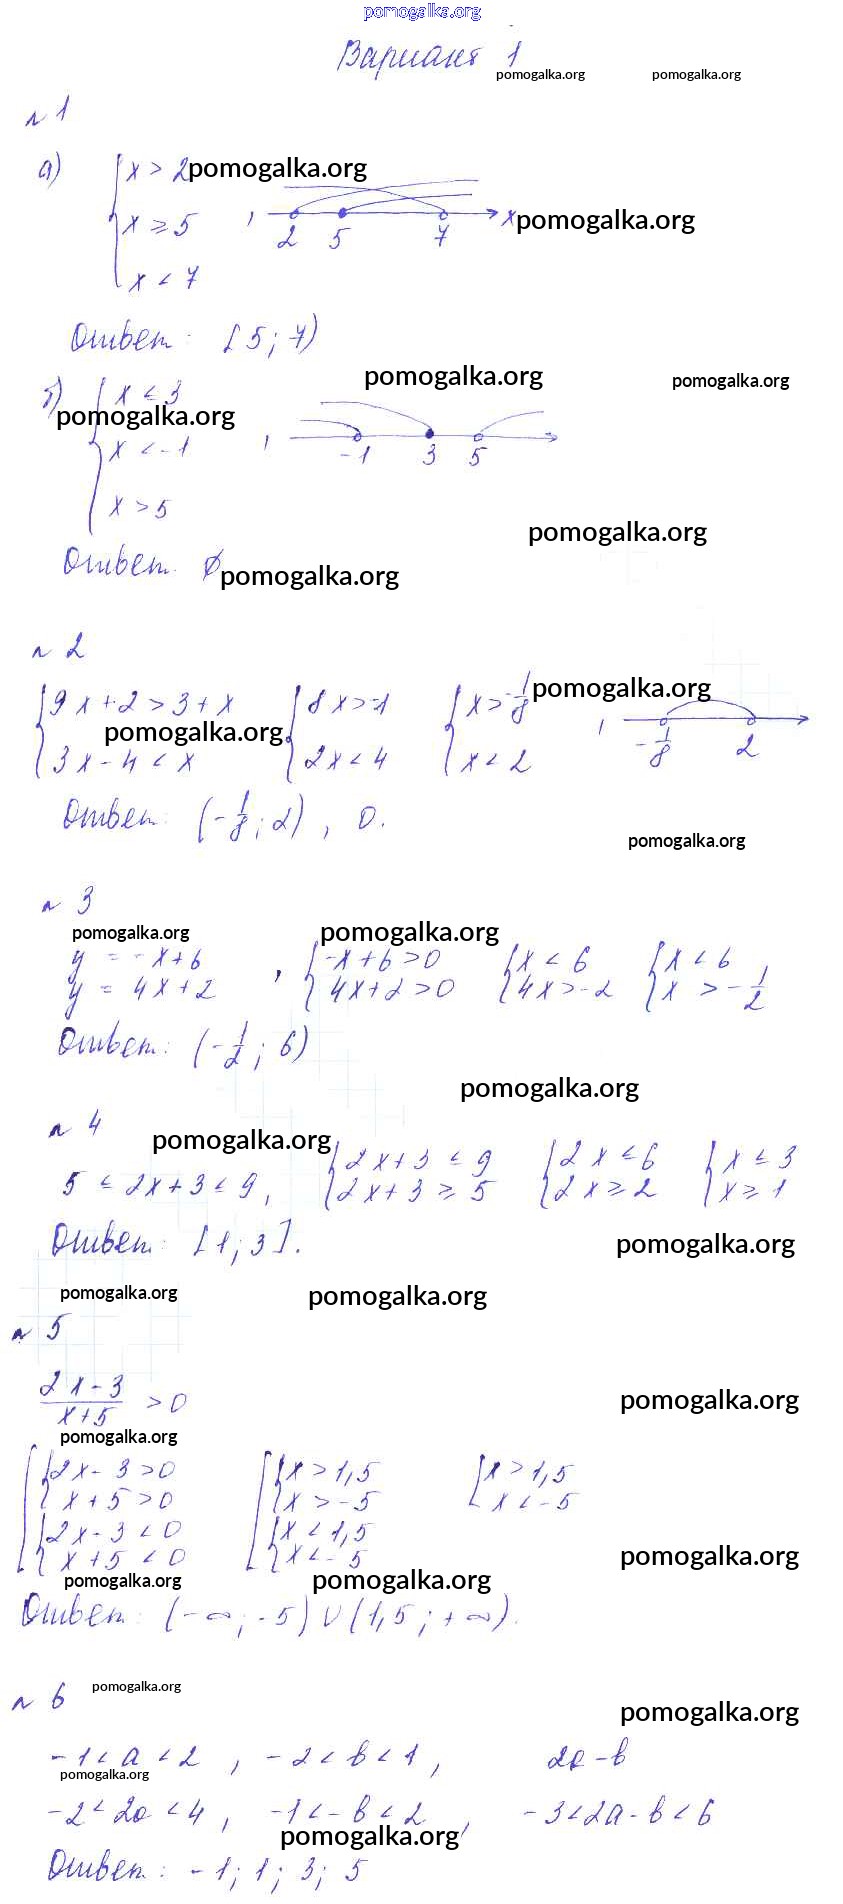 pomogalka.org
Вариант 1
pomogalka.org pomogalka.org
n 1
а) { x > 2 pomogalka.org
x ≥ 5 , 2 5 7 x pomogalka.org
x < 7
Ответ: [5; 7)
pomogalka.org pomogalka.org
б) { x ≤ 3
pomogalka.org
x < -1 , -1 3 5
x > 5
pomogalka.org
Ответ: ∅ pomogalka.org
n 2
{ 9x+2 > 3+x { 8x > -1 { x > -1/8 pomogalka.org
pomogalka.org
3x-4 < x 2x < 4 x < 2 , -1/8 2
Ответ: (-1/8; 2), 0.
pomogalka.org
n 3
pomogalka.org pomogalka.org
y = -x+6 , { -x+6 > 0 { x < 6 { x < 6
y = 4x+2 4x+2 > 0 4x > -2 x > -1/2
Ответ: (-1/2; 6)
pomogalka.org
n 4
pomogalka.org
5 ≤ 2x+3 ≤ 9, { 2x+3 ≤ 9 { 2x ≤ 6 { x ≤ 3
2x+3 ≥ 5 2x ≥ 2 x ≥ 1
Ответ: [1; 3].
pomogalka.org
pomogalka.org pomogalka.org
n 5
(2x-3)/(x+5) > 0
pomogalka.org
pomogalka.org
[ { 2x-3 > 0 [ { x > 1,5 [ x > 1,5
x+5 > 0 x > -5 x < -5
{ 2x-3 < 0 { x < 1,5
x+5 < 0 x < -5
pomogalka.org
pomogalka.org pomogalka.org
Ответ: (-∞; -5) ∪ (1,5; +∞).
n 6
pomogalka.org
pomogalka.org
-1 < a < 2, -2 < b < 1, 2a-b
pomogalka.org
-2 < 2a < 4, -1 < -b < 2, -3 < 2a-b < 6
pomogalka.org
Ответ: -1; 1; 3; 5